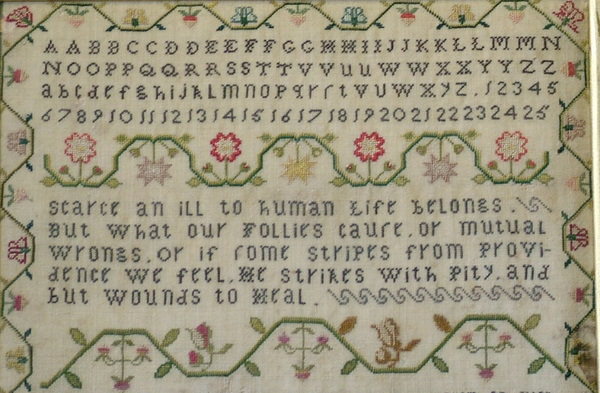 AABBCCDDEEFFGGHHIIJJKKLLMMN
NOOPPQQRRSSTTVVUUWWXXYYZZ
abcdefghijklmnopqrſtvuwxyz.12345
678910111213141516171819202122232425
Scarce an ill to human life belongs.
But what our Follies cauſe, or mutual
Wrongs, or if ſome stripes from Provi-
dence we feel, He strikes with pity, and
but wounds to Heal.